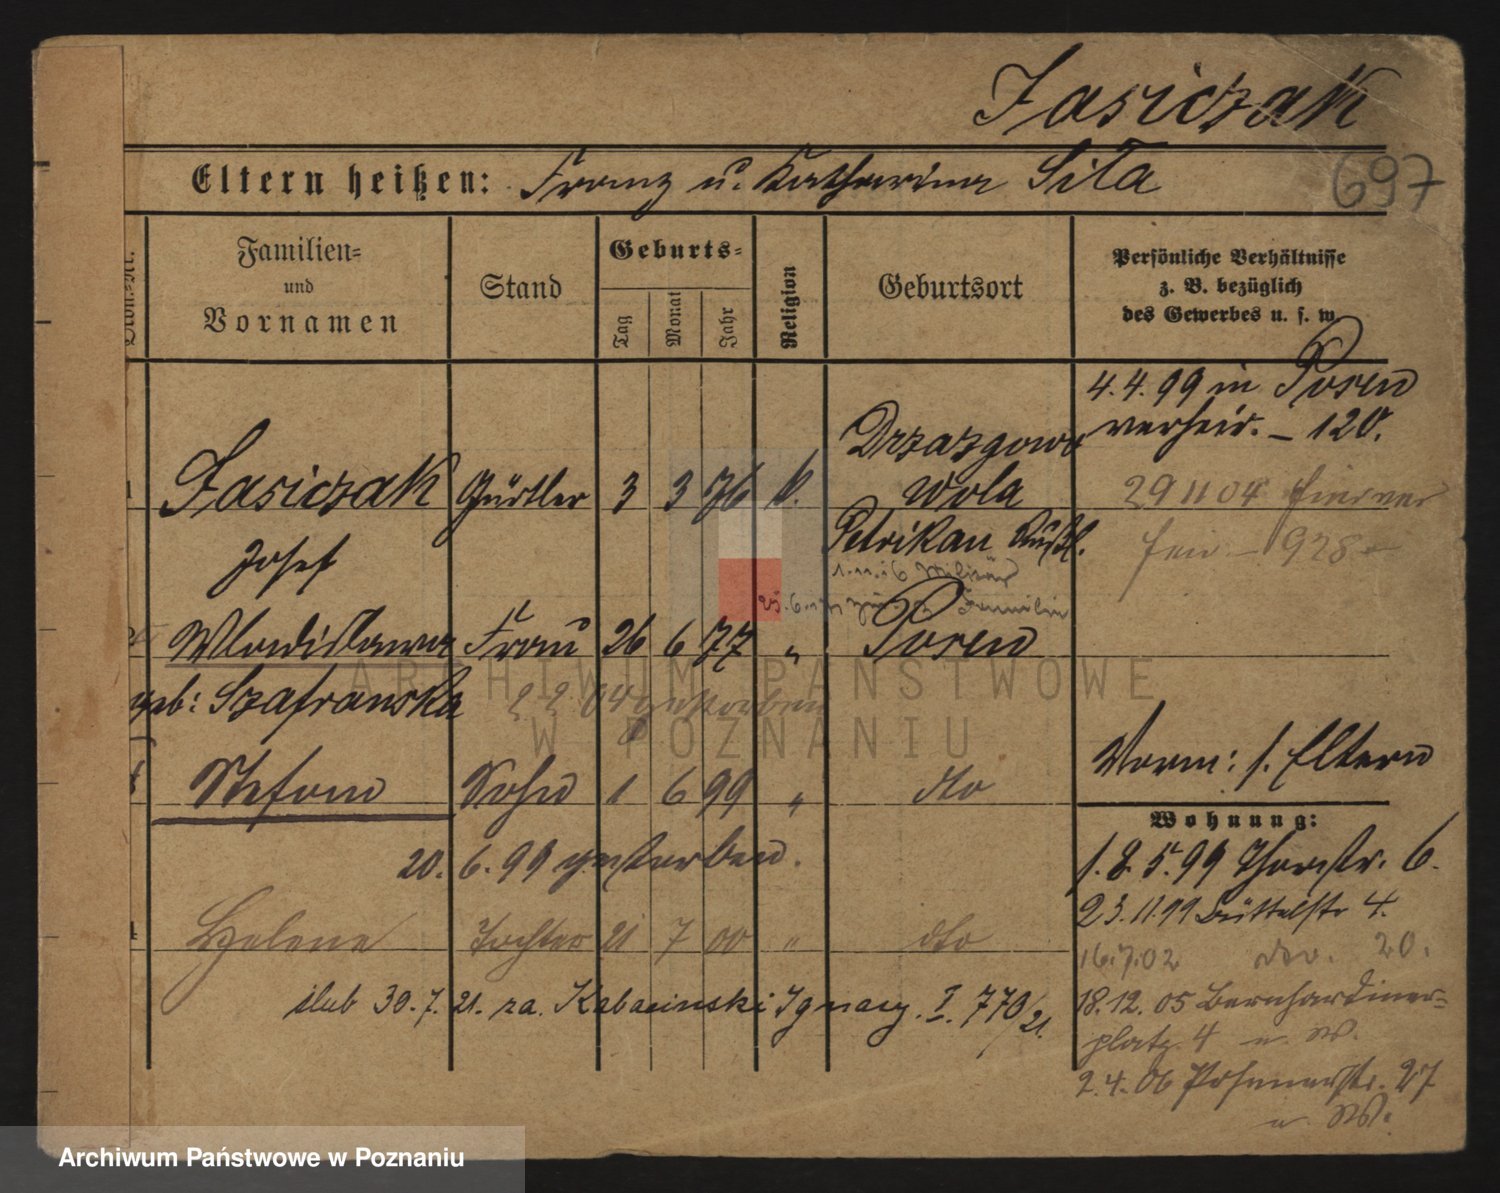 Jasiczak
697
Eltern heißen: Franz u. Katharina Sita
Familien= und Vornamen
Stand
Geburts=
Tag
Monat
Jahr
Religion
Geburtsort
Persönliche Verhältnisse
z. B. bezüglich
des Gewerbes u. s. w.
4.4.99 in Posen
verheir. – 120.
Jasiczak Gürtler 3 3 76 k. Drzazgowa
Wola
29 11 04
Josef Petrikau Rußl.
928
1.11.16 Militär
25.6. Familie
Wladislawa Frau 26 6 77 " Posen
geb: Szafranska 2 2 04 gestorben
Vorm: s. Eltern
Stefan Sohn 1 6 99 " dto
Wohnung:
20. 6. 99 gestorben.
1.8.5.99 Thorstr. 6.
23.11.99 Büttelstr 4.
4 Helene Tochter 21 7 00 " dto
16.7.02 do. 20.
ślub 30.7.21. za. Kabacinski Ignacy. I. 770/21.
18.12.05 Bernhardiner=
platz 4 u. W.
2.4.06 Posenerstr. 27
u. W.
ARCHIWUM PAŃSTWOWE
W POZNANIU
Archiwum Państwowe w Poznaniu